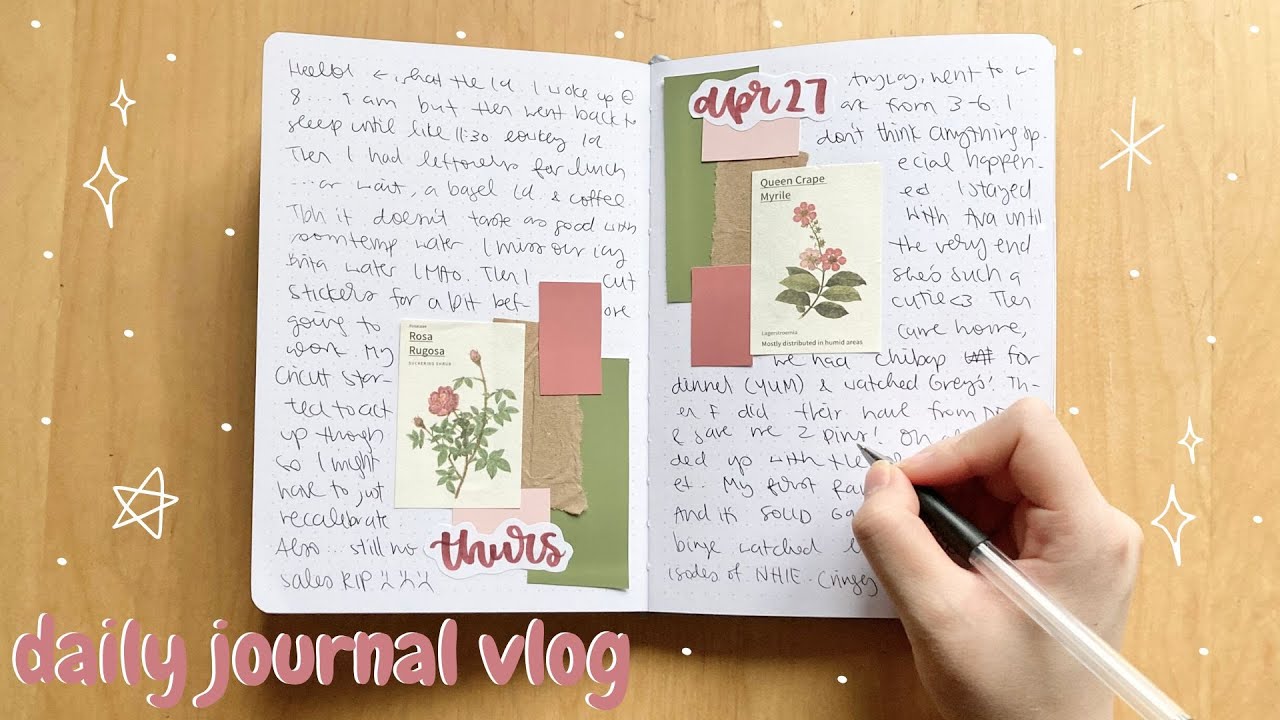 what the ld. I woke up @
8... i am but then went back to
sleep until like 11:30
Then I had leftovers for lunch
...or wait, a bagel ld. & coffee.
Tbh it doesn't taste as good with
roomtemp water. I miss our icy
brita water LMAO. Then I cut
stickers for a bit bef- ore
going to
work. My
Cricut star-
ted to act
up though
so I might
have to just
recalibrate
Also... still no
sales RIP
Rosa
Rugosa
thurs
apr 27
went to w-
ork from 3-6. I
don't think anything sp-
ecial happen-
ed. I stayed
with Ava until
the very end
she's such a
cutie<3 Then
came home,
we had chibap for
dinner (YUM) & watched Grey's! Th-
en I did their haul from
& gave me 2 pins! Oh
ded up with
et. My first
And it's SOLID
binge watched
isodes of NHIE. Cringey
Queen Crape
Myrile
Lagerstroemia
Mostly distributed in humid areas
daily journal vlog